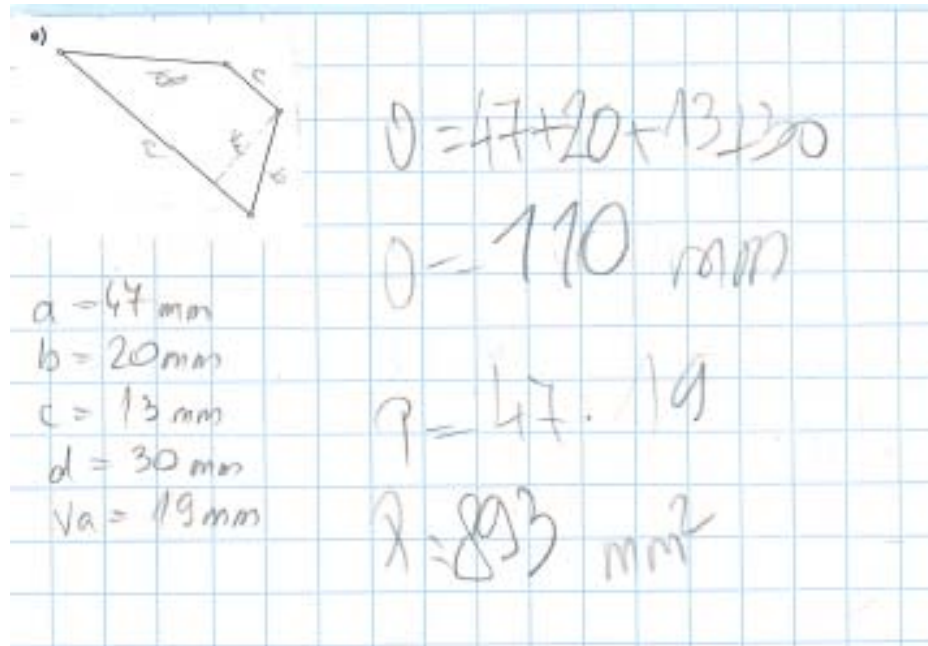 e)
d
c
a
va
b
a = 47 mm
b = 20 mm
c = 13 mm
d = 30 mm
va = 19 mm
O = 47 + 20 + 13 + 30
O = 110 mm
P = 47 · 19
P = 893 mm²